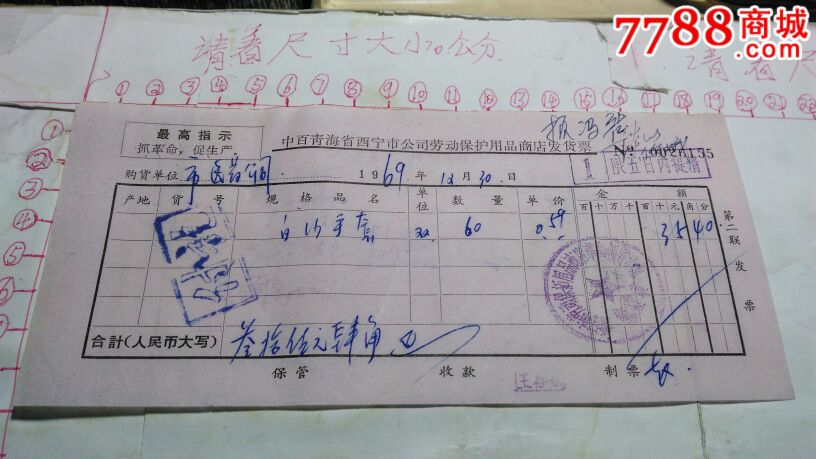 7788商城
请看尺寸大小70公分
请看尺
1 2 3 4 5 6 7 8 9 10 11 12 13 14 15 16 17 18 19 20 21 22
最高指示
抓革命,促生产。
中百青海省西宁市公司劳动保护用品商店发货票
№ 0026135
限五日内提清
购货单位 市医药公司 1969年12月30日
产地 货号 规格品名 单位 数量 单价 金额
百十万千百十元角分
白沙手套 双 60 0.59 35 40
第二联 发票
合計(人民币大写) 叁拾伍元肆角
保管 收款 制票